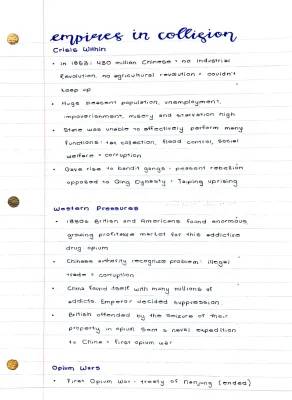 empires in collision
Crisis Within
• in 1853: 430 million Chinese = no Industrial
Revolution, no agricultural revolution = couldn't
keep up
• Huge peasant population, unemployment,
impoverishment, misery and starvation high
• State was unable to effectively perform many
functions: tax collection, flood control, social
welfare = corruption
• Gave rise to bandit gangs = peasant rebellion
opposed to Qing Dynasty = Taiping uprising
Western Pressures
• British and Americans found enormous,
growing profitable market for this addictive
drug opium
• Chinese authority recognize problem: illegal
trade = corruption
• China found itself with many millions of
addicts. Emperor decided suppression
• British offended by the seizure of their
property in opium sent a naval expedition
to China = first opium war
Opium Wars
• First Opium War - treaty of Nanjing (ended)